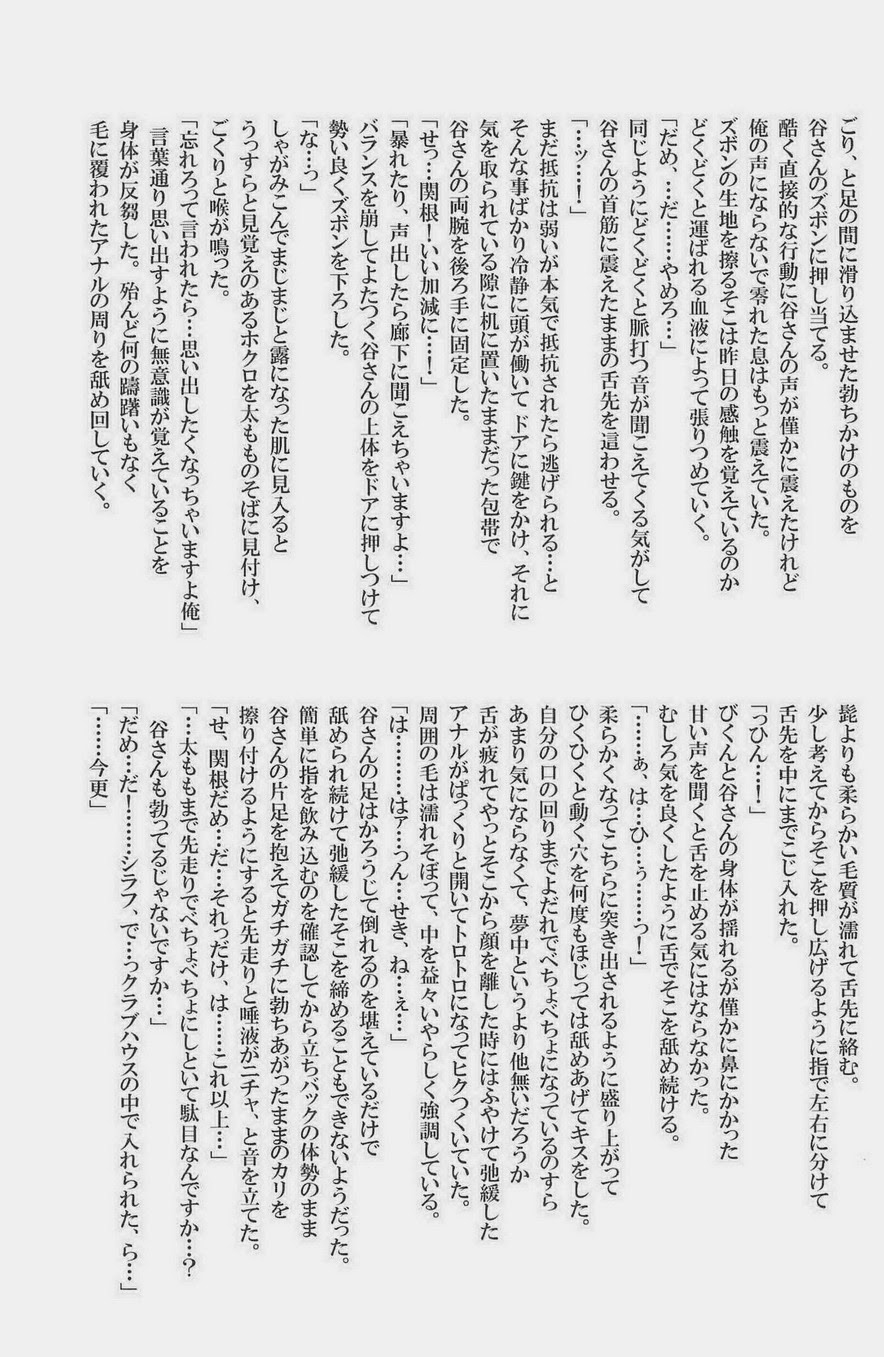 ごり、と足の間に滑り込ませた勃ちかけのものを
谷さんのズボンに押し当てる。
酷く直接的な行動に谷さんの声が僅かに震えたけれど
俺の声にならないで零れた息はもっと震えていた。
ズボンの生地を擦るそこは昨日の感触を覚えているのか
どくどくと運ばれる血液によって張りつめていく。
「だめ、…だ……やめろ…」
同じようにどくどくと脈打つ音が聞こえてくる気がして
谷さんの首筋に震えたままの舌先を這わせる。
「…ッ…！」
まだ抵抗は弱いが本気で抵抗されたら逃げられる…と
そんな事ばかり冷静に頭が働いて ドアに鍵をかけ、それに
気を取られている隙に机に置いたままだった包帯で
谷さんの両腕を後ろ手に固定した。
「せっ…関根！いい加減に…！」
「暴れたり、声出したら廊下に聞こえちゃいますよ…」
バランスを崩してよたつく谷さんの上体をドアに押しつけて
勢い良くズボンを下ろした。
「な…っ」
しゃがみこんでまじまじと露になった肌に見入ると
うっすらと見覚えのあるホクロを太もものそばに見付け、
ごくりと喉が鳴った。
「忘れろって言われたら…思い出したくなっちゃいますよ俺」
言葉通り思い出すように無意識が覚えていることを
身体が反芻した。殆んど何の躊躇いもなく
毛に覆われたアナルの周りを舐め回していく。
髭よりも柔らかい毛質が濡れて舌先に絡む。
少し考えてからそこを押し広げるように指で左右に分けて
舌先を中にまでこじ入れた。
「っひん…！」
びくんと谷さんの身体が揺れるが僅かに鼻にかかった
甘い声を聞くと舌を止める気にはならなかった。
むしろ気を良くしたように舌でそこを舐め続ける。
「……ぁ、は…ひ…ぅ……っ！」
柔らかくなってこちらに突き出されるように盛り上がって
ひくひくと動く穴を何度もほじっては舐めあげてキスをした。
自分の口の回りまでよだれでべちょべちょになっているのすら
あまり気にならなくて、夢中というより他無いだろうか
舌が疲れてやっとそこから顔を離した時にはふやけて弛緩した
アナルがぱっくりと開いてトロトロになってヒクついていた。
周囲の毛は濡れそぼって、中を益々いやらしく強調している。
「は………はァ…っん…せき、ね…ぇ…」
谷さんの足はかろうじて倒れるのを堪えているだけで
舐められ続けて弛緩したそこを締めることもできないようだった。
簡単に指を飲み込むのを確認してから立ちバックの体勢のまま
谷さんの片足を抱えてガチガチに勃ちあがったままのカリを
擦り付けるようにすると先走りと唾液がニチャ、と音を立てた。
「せ、関根だめ…だ…それっだけ、は……これ以上…」
「…太ももまで先走りでべちょべちょにしといて駄目なんですか…？
谷さんも勃ってるじゃないですか…」
「だめ…だ！………シラフ、で…っクラブハウスの中で入れられた、ら…」
「……今更」